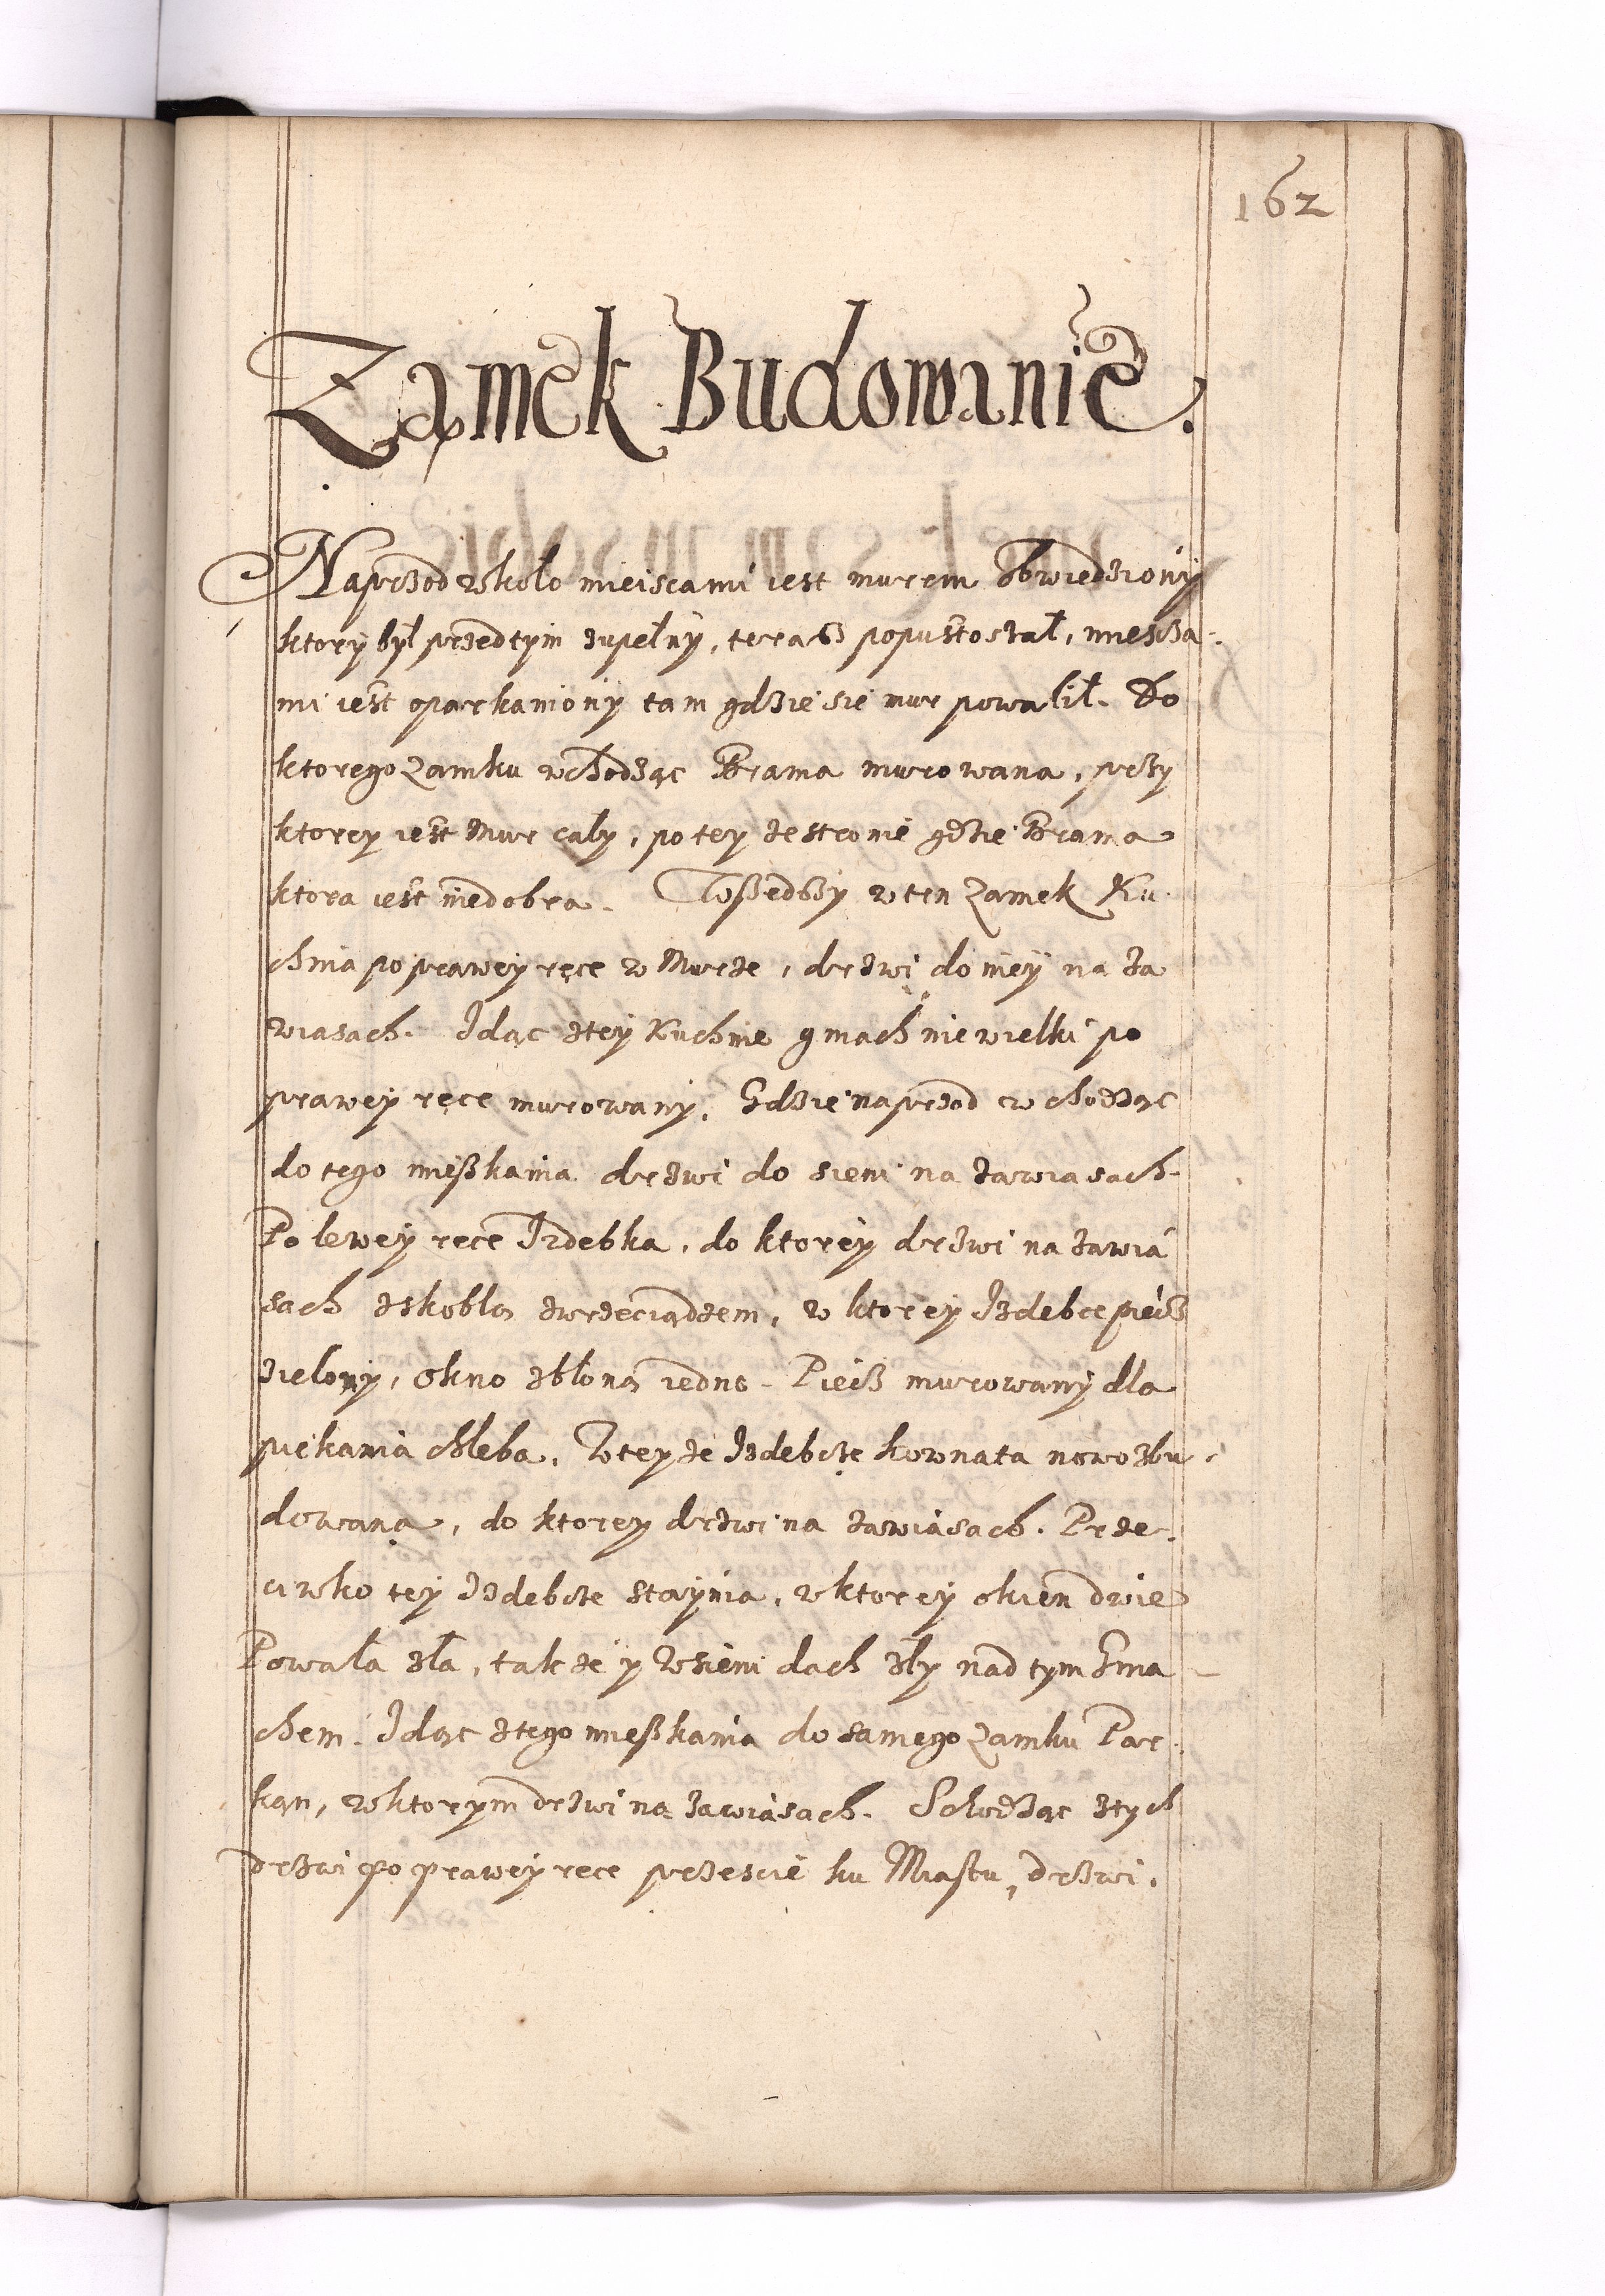 162
Zamek Budowanie.
Naprzod wkoło mieiscami iest murem obwiedziony
ktory był przedtym zupełny, teraß popustoszał, miesca-
mi iest oparkaniony tam gdzie sie mur powalił. Do
ktorego Zamku wchodząc Brama murowana, przy
ktorey iest Mur cały, po tey ze stronie gdzie Brama
ktora iest niedobra. Woßedßy w ten Zamek Ku
chnia po prawey ręce w Murze, drzwi do niey na za
wiasach. Idąc z tey Kuchnie gmach niewielki po
prawey ręce murowany. Gdzie naprzod wchodząc
do tego mießkania drzwi do sieni na zawiasach.
Po lewey ręce Izdebka, do ktorey drzwi na zawia
sach z skoblą zwrzeciądzem, w ktorey Izdebce piecz
zielony, okno z błoną iedno. Piecz murowany dla
piekania chleba. W tey ze Izdebcze kownata nowo zbu-
dowana, do ktorey drzwi na zawiasach. Prze-
ciwko tey Izdebcze staynia, w ktorey okien dwie
Powała zła, takze y w sieni dach zły nad tym Gma-
chem. Idąc z tego mießkania do samego Zamku Par-
kan, w ktorym drzwi na zawiasach. Schodząc z tych
drzwi po prawey ręce przescie ku Miastu, drzwi.